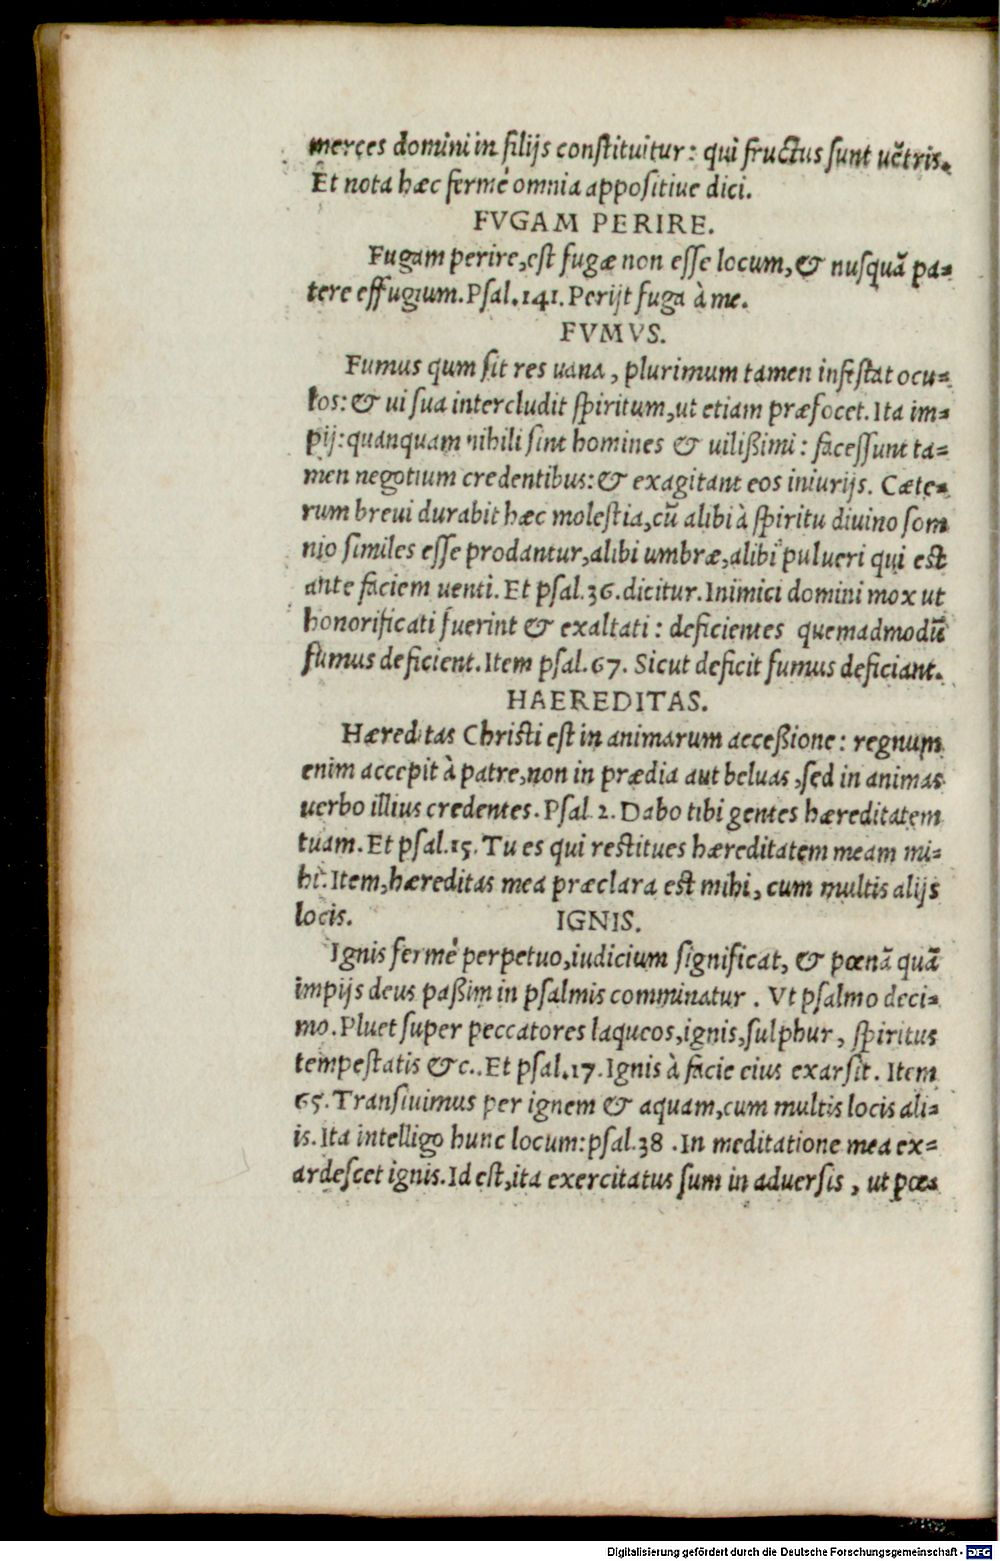 merces domini in filijs constituitur: qui fructus sunt uẽtris.
Et nota hæc fermè omnia appositiue dici.
FVGAM PERIRE.
Fugam perire, est fugæ non esse locum, & nusquã pa-
tere effugium. Psal. 141. Perijt fuga à me.
FVMVS.
Fumus qum sit res uana, plurimum tamen infestat ocu-
los: & ui sua intercludit spiritum, ut etiam præfocet. Ita im-
pij: quanquam nihili sint homines & uilißimi: facessunt ta-
men negotium credentibus: & exagitant eos iniurijs. Cæte-
rum breui durabit hæc molestia, cũ alibi à spiritu diuino som
nio similes esse prodantur, alibi umbræ, alibi pulueri qui est
ante faciem uenti. Et psal. 36. dicitur. Inimici domini mox ut
honorificati fuerint & exaltati: deficientes quemadmodũ
fumus deficient. Item psal. 67. Sicut deficit fumus deficiant.
HAEREDITAS.
Hæreditas Christi est in animarum acceßione: regnum
enim accepit à patre, non in prædia aut beluas, sed in animas
uerbo illius credentes. Psal. 2. Dabo tibi gentes hæreditatem
tuam. Et psal. 15. Tu es qui restitues hæreditatem meam mi-
hi. Item, hæreditas mea præclara est mihi, cum multis alijs
locis. IGNIS.
Ignis fermè perpetuo, iudicium significat, & pœnã quã
impijs deus paßim in psalmis comminatur. Vt psalmo deci-
mo. Pluet super peccatores laqueos, ignis, sulphur, spiritus
tempestatis &c.. Et psal. 17. Ignis à facie eius exarsit. Item
65. Transiuimus per ignem & aquam, cum multis locis ali-
is. Ita intelligo hunc locum: psal. 38. In meditatione mea ex-
ardescet ignis. Id est, ita exercitatus sum in aduersis, ut pœ-
Digitalisierung gefördert durch die Deutsche Forschungsgemeinschaft - DFG